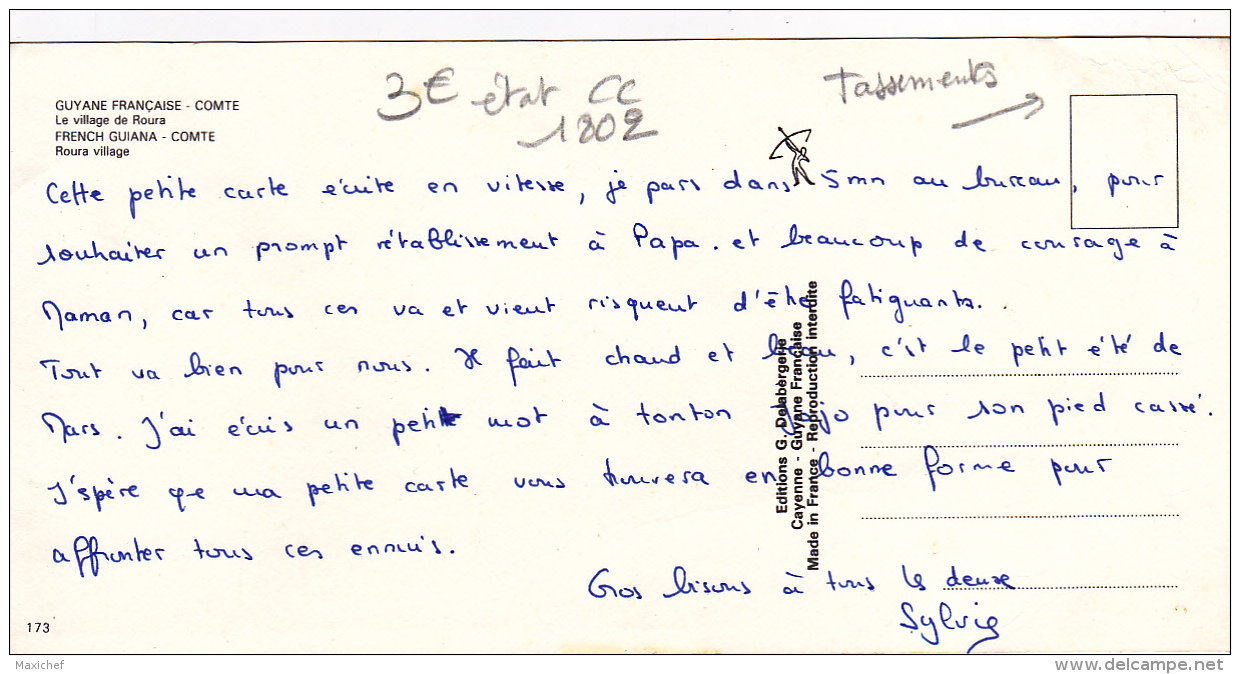 3€ état CC
1802
Tassements
GUYANE FRANÇAISE - COMTE
Le village de Roura
FRENCH GUIANA - COMTE
Roura village
Cette petite carte écrite en vitesse, je pars dans 5mn au bureau, pour
souhaiter un prompt rétablissement à Papa. et beaucoup de courage à
Maman, car tous ces va et vient risquent d'être fatiguants.
Tout va bien pour nous. Il fait chaud et beau, c'est le petit été de
Mars. J'ai écris un petit mot à tonton Jojo pour son pied cassé.
J'spère que ma petite carte vous trouvera en bonne forme pour
affronter tous ces ennuis.
Gros bisous à tous les deux
Sylvie
Editions G. Delabergerie
Cayenne - Guyane Française
Made in France - Reproduction interdite
173
Maxichef
www.delcampe.net